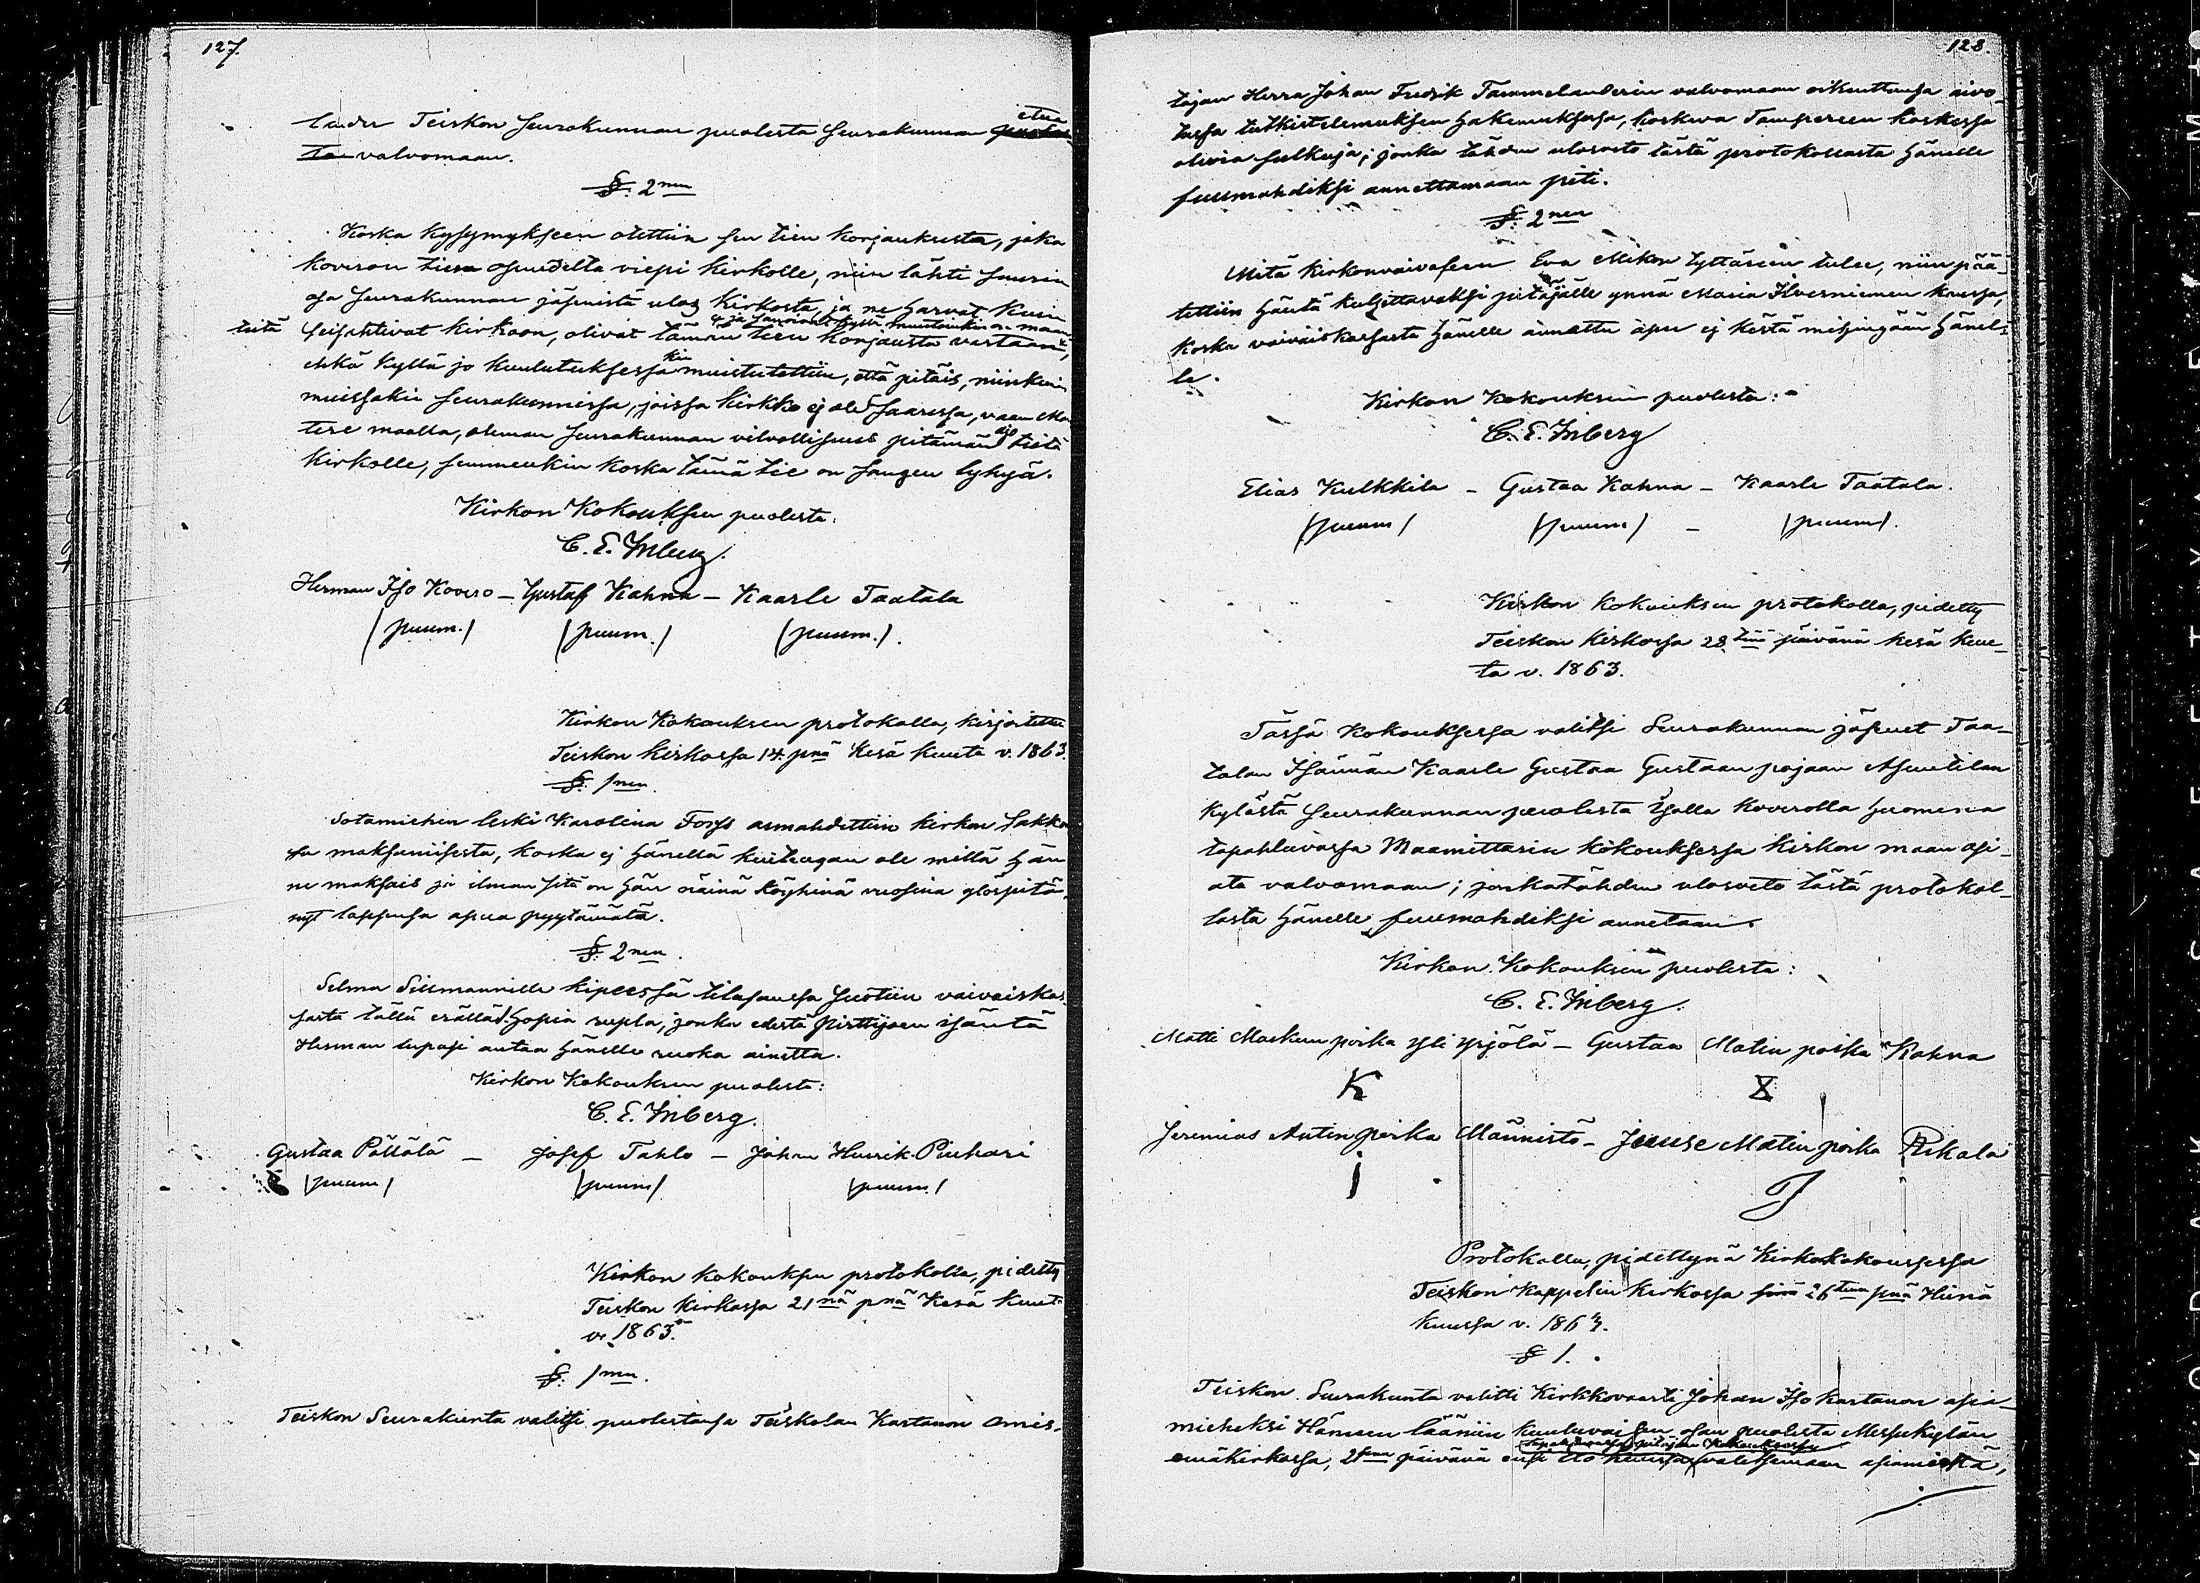 127.
etua
Teiskon seurakunnan puolesta seurakunnan
ta valvomaan.
§. 2nen
Koska Kysymykseen otettiin sen tien korjauksesta, joka
Koveron tien viepi Kirkolle, niin lähti suurin
osa seurakunnan jäsenistä ulos Kirkosta, ja ne harvat Kuin
teitä seisahtivat Kirkoon, olivat tämän tien Korjausta vastaan,
ehkä Kyllä jo Kuulutuksessakin muistutettiin, että pitäis, niinkuin
muissakin seurakunnissa, joissa Kirkko ej ole saaressa, vaan
maalla, oleman seurakunnan velvollisuus pitämän tietä
Kirkolle, semmenkin Koska tämä tie on sangen lyhyjä.
Kirkon Kokouksen puolesta:
C. E. Inberg.
Herman Iso Kovero – Gustaf Kahna – Kaarle Taatala
/puum./ /puum./ /puum./.
Kirkon Kokouksen protokolla, kirjoitettu
Teiskon Kirkossa 14. pnä Kesä Kuuta v. 1863.
§. 1nen.
Sotamiehen leski Karolina Forss armahdettiin kirkon sakko
maksamisesta, koska ej hänellä kuitengan ole millä hän
ne maksais ja ilman sitä on hän näinä köyhinä vuosina ylöspitä-
nyt lappensa apua pyytämätä.
§. 2nen.
Selma Sillmannille Kipeessä tilasansa suotiin vaivaiskas-
sasta tällä erällä 1. hopia rupla, jonka edestä Pirttijoen isäntä
Herman lupasi antaa hänelle ruoka ainetta.
Kirkon Kokouksen puolesta:
C. E. Inberg.
Gustaa Pällälä – Josef Tahlo – Johan Henrik Pinhari
/puum/ /puum/ /puum./
Kirkon kokouksen protokolla, pidetty
Teiskon Kirkossa 21nä pnä Kesä Kuuta
v. 1863.
§. 1nen.
Teiskon Seurakunta valitsi puolestansa Teiskolan Kartanon omis-
128.
tajan Herra Johan Fredrik Tammelanderin valvomaan oikeuttansa aivo-
tussa tutkistelemuksen hakemuksessa, koskeva Tampereen koskessa
olivia sulkuja; jonka tähden ulosveto tästä protokollasta hänelle
suusmahdiksi annettamaan piti.
§. 2nen
Mitä kirkonvaivaseen Eva Mikon tyttäreen tulee, niin pää-
tettiin häntä kuljettavaksi pitäjälle ynnä Maria Ilverniemen kanssa,
Koska vaivaiskassasta hänelle annettu apu ej kestä mihingään hänel-
le.
Kirkon Kokouksen puolesta:
C. E. Inberg
Elias Kulkkila – Gustaa Kahna – Kaarle Taatala.
/puum/ /puum/ – /puum/.
Kirkon kokouksen protokolla, pidetty
Teiskon Kirkossa 28tena päivänä Kesä Kuu-
ta v. 1863.
Tässä Kokouksessa valitsi Seurakunnan jäsenet Taa-
talan Isännän Kaarle Gustaa Gustaan pojaan Asuntilan
Kylästä seurakunnan puolesta Isolla Koverolla huomena
tapahtuvassa Maamittarin kokouksessa kirkon maan asi-
ata valvomaan; jonkatähden ulosveto tästä protokol-
lasta hänelle suusmahdiksi annetaan.
Kirkon Kokouksen puolesta:
C. E. Inberg.
Matti Markun poika Yli Yrjölä – Gustaa Matin poika Kahna
K X
Jeremias Antin poika Männistö – Jeuse Matin poika Pikala
J J
Protokolla, pidettynä Kirkokokouksessa
Teiskon Kappelin Kirkossa 26tena pnä Heinä
Kuussa v. 1863.
§ 1.
Teiskon Seurakunta valitti Kirkkovaarti Johan Iso Kartanon asia-
mieheksi Hämeen lääniin kuuluvaisen osan puolesta Messukylän
tapahtuvassa pitäjän Kokouksessa
emäkirkossa, 2tena päivänä ensi Elo kuussa valitsemaan asiamiestä,